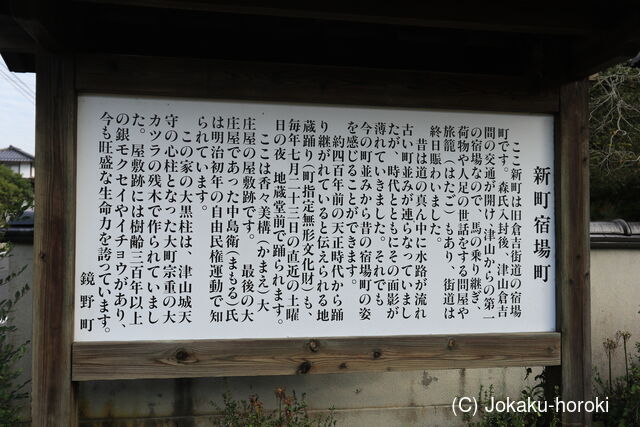 新町宿場町
ここ新町は旧倉吉街道の宿場
町です。森氏入封後、津山倉吉
間の交通が開け津山からの第一
の宿場なので、馬の乗り継ぎ、
荷物や人足の世話をする問屋や
旅籠（はたご）もあり、街道は
終日賑わいました。
昔は道の真ん中に水路が流れ
古い町並みが連らなっていまし
たが、時代とともにその面影が
薄れていきました。それでも
今の町並みから昔の宿場町の姿
を感じることができます。
約四百年前の天正時代から踊
り継がれていると伝えられる地
蔵踊り（町指定無形文化財）も、
毎年七月二十三日の直近の土曜
日の夜、地蔵堂前で踊られます。
ここは香々美構（かまえ）大
庄屋の屋敷跡です。　最後の大
庄屋であった中島衛（まもる）氏
は明治初年の自由民権運動で知
られています。
この家の大黒柱は、津山城天
守の心柱となった大町宗重の大
カツラの残木で作られていまし
た。屋敷跡には樹齢三百年以上
の銀モクセイやイチョウがあり、
今も旺盛な生命力を誇っています。
鏡野町
(C) Jokaku-horoki